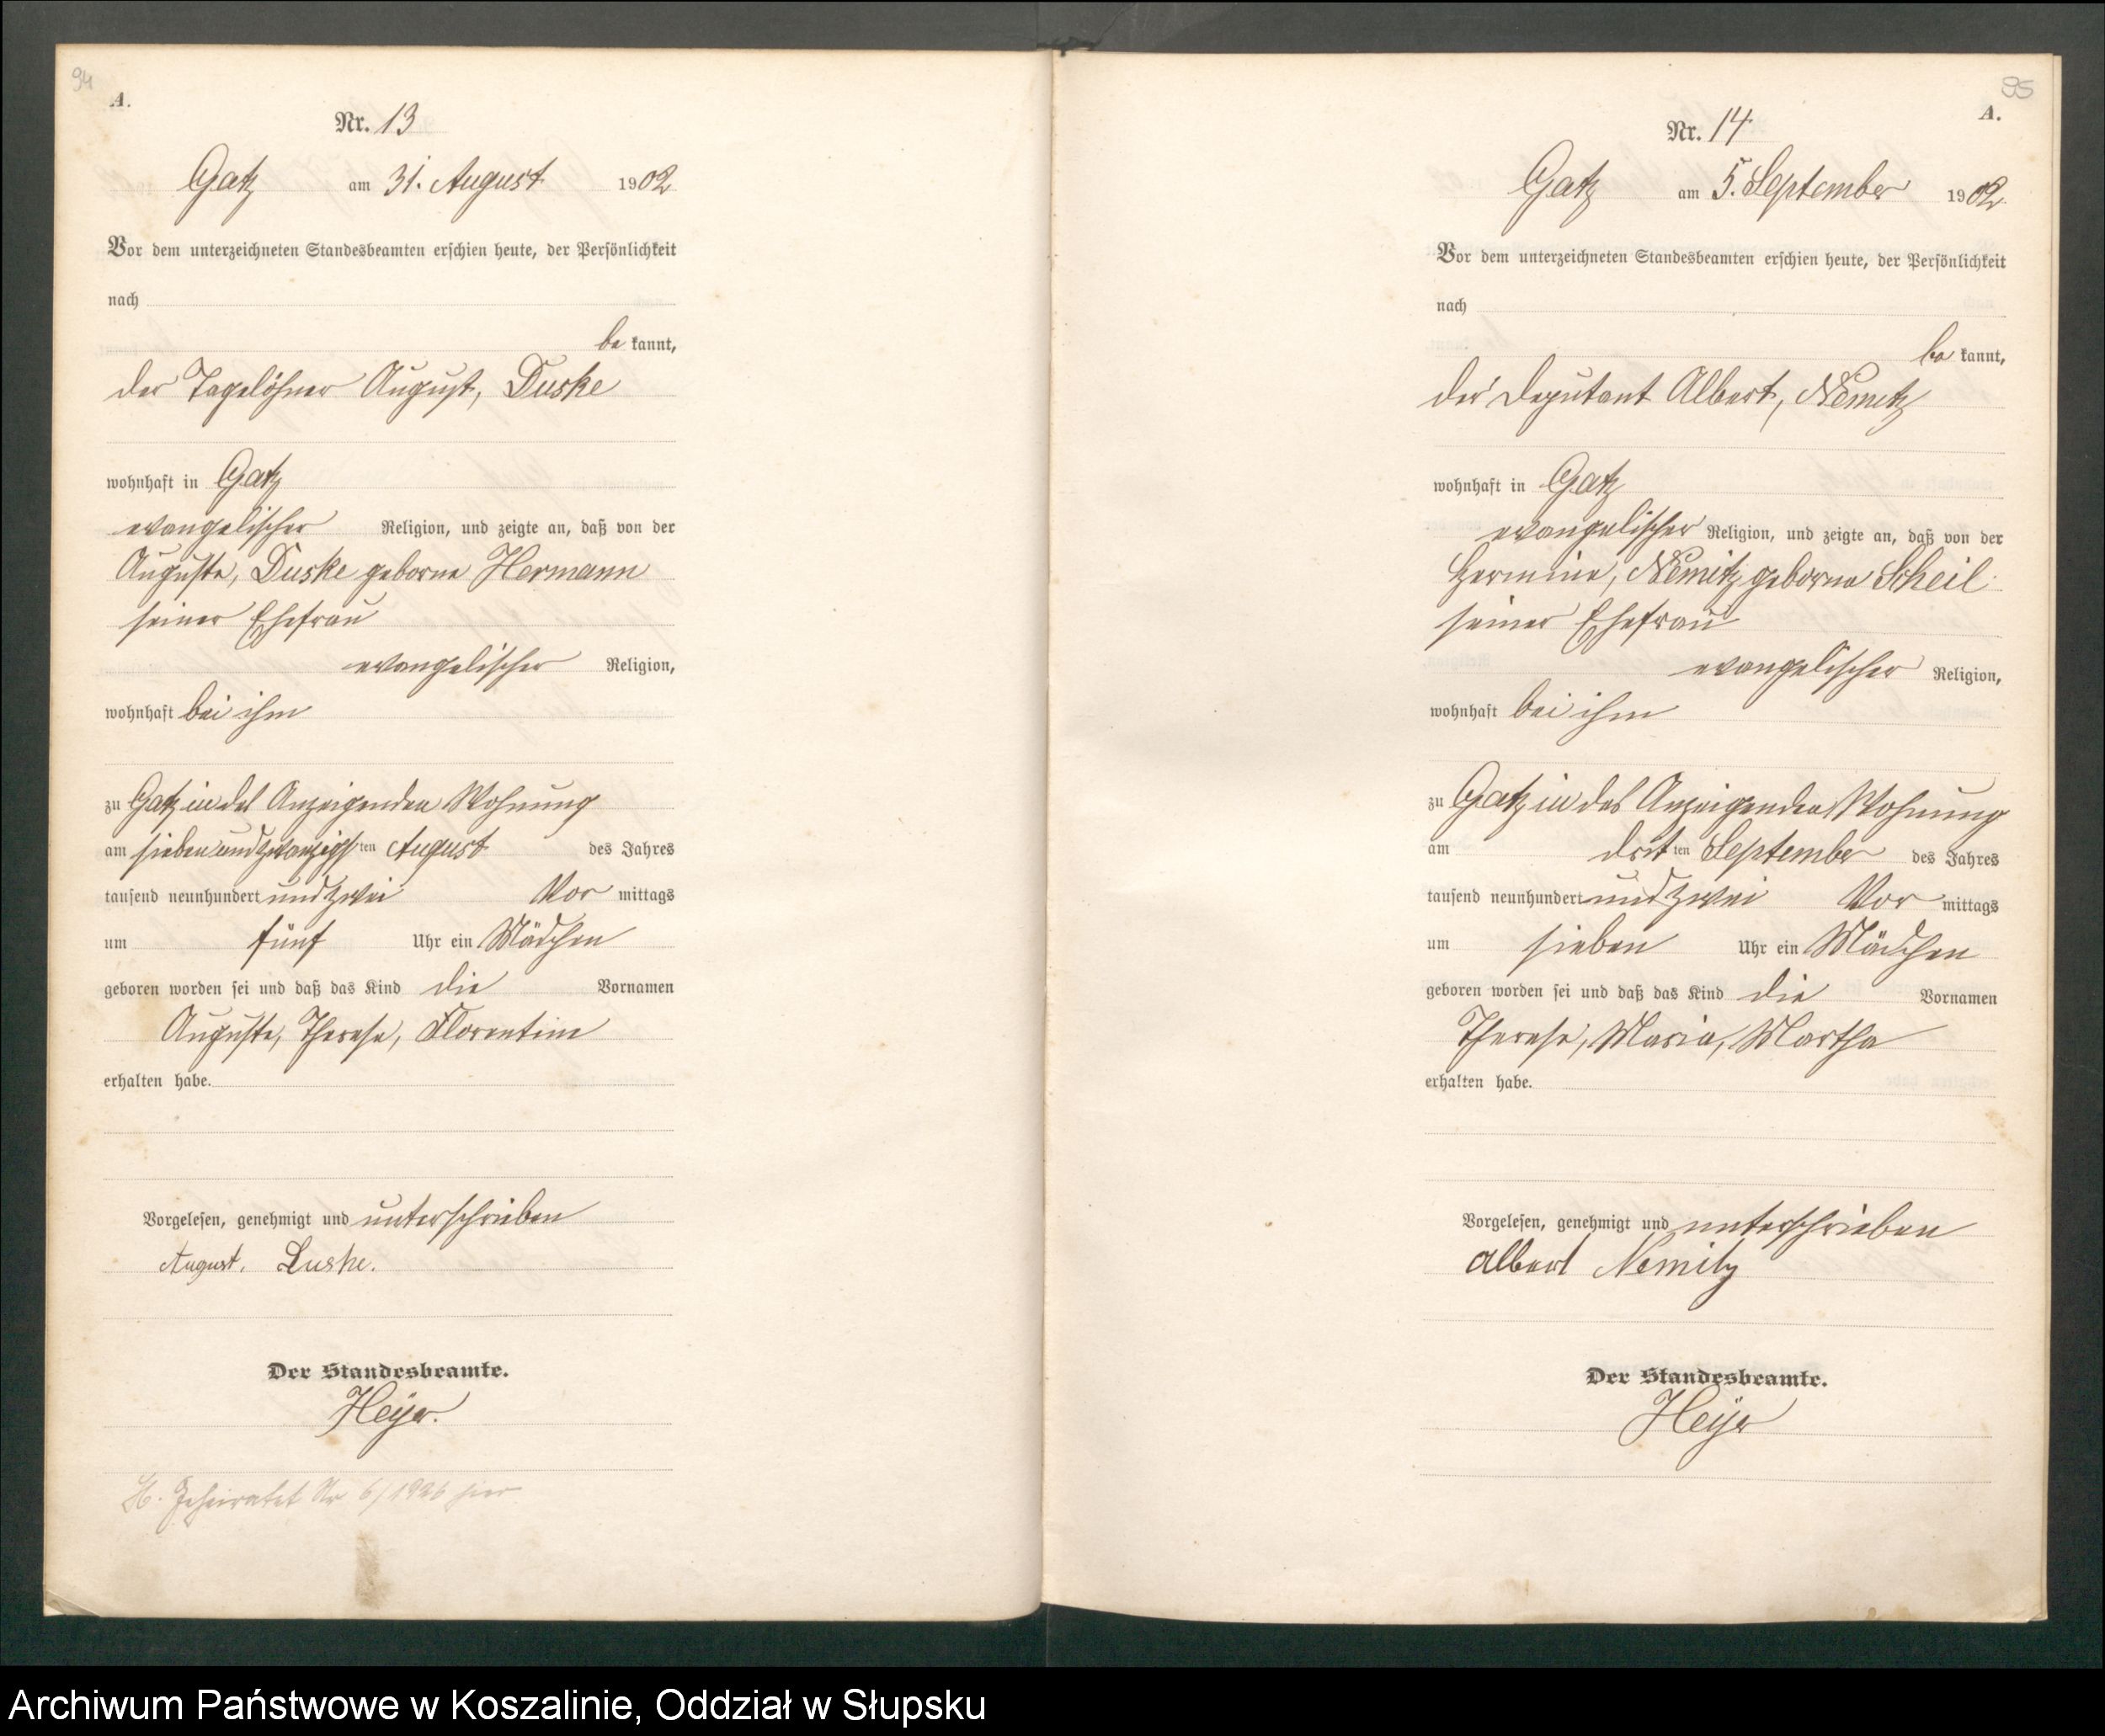 94
A.
Nr. 13
Gatz am 31. August 1902
Vor dem unterzeichneten Standesbeamten erschien heute, der Persönlichkeit
nach
be kannt,
der Tagelöhner August, Duske
wohnhaft in Gatz
evangelischer Religion, und zeigte an, daß von der
Auguste, Duske geborne Hermann
seiner Ehefrau
evangelischer Religion,
wohnhaft bei ihm
zu Gatz in des Anzeigenden Wohnung
am siebenundzwanzigsten August des Jahres
tausend neunhundert und zwei Vor mittags
um fünf Uhr ein Mädchen
geboren worden sei und daß das Kind die Vornamen
Auguste, Therese, Florentine
erhalten habe.
Vorgelesen, genehmigt und unterschrieben
August. Duske.
Der Standesbeamte.
Heyer.
H. Geheiratet Nr 6/1926 hier
95
A.
Nr. 14
Gatz am 5. September 1902
Vor dem unterzeichneten Standesbeamten erschien heute, der Persönlichkeit
nach
be kannt,
der Deputant Albert, Nemitz
wohnhaft in Gatz
evangelischer Religion, und zeigte an, daß von der
Hermine, Nemitz geborne Scheil
seiner Ehefrau
evangelischer Religion,
wohnhaft bei ihm
zu Gatz in des Anzeigenden Wohnung
am dritten September des Jahres
tausend neunhundert und zwei Vor mittags
um sieben Uhr ein Mädchen
geboren worden sei und daß das Kind die Vornamen
Therese, Maria, Martha
erhalten habe.
Vorgelesen, genehmigt und unterschrieben
Albert Nemitz
Der Standesbeamte.
Heyer
Archiwum Państwowe w Koszalinie, Oddział w Słupsku